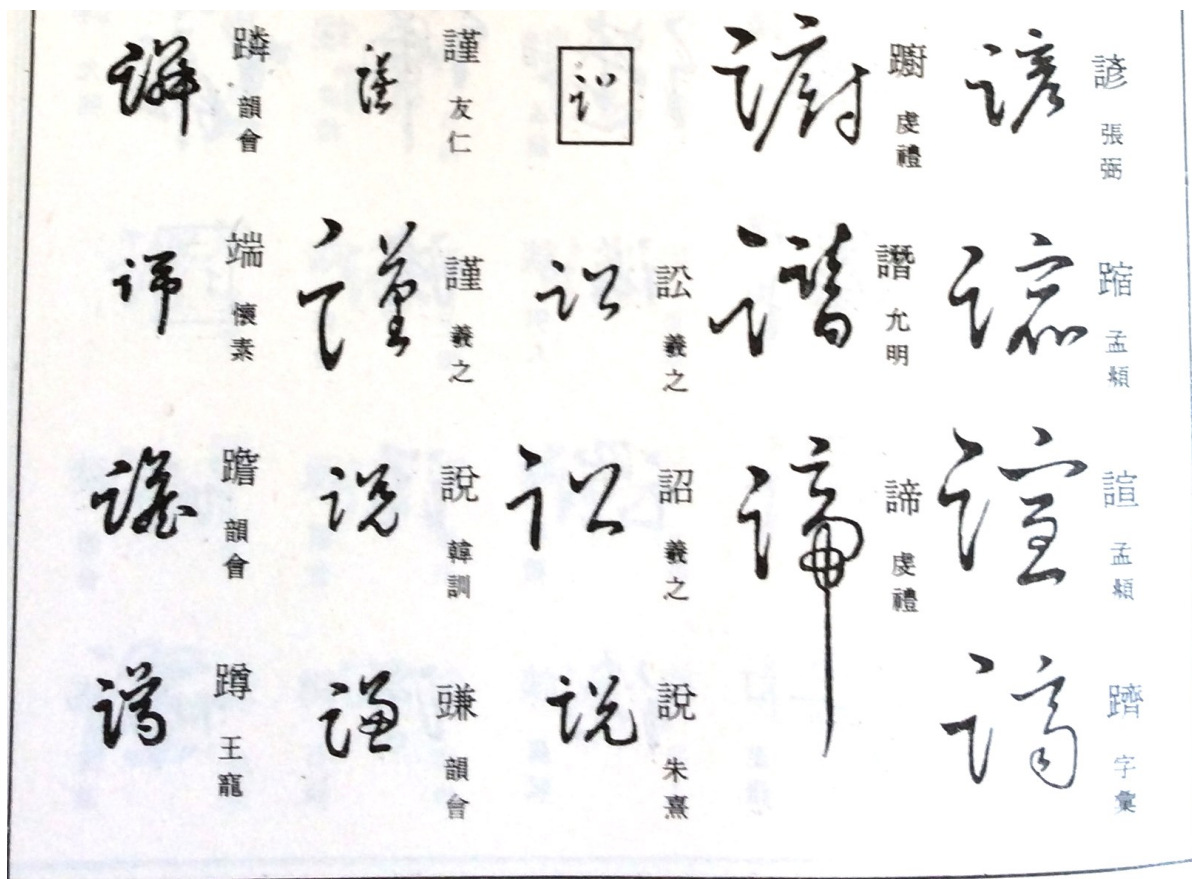 諺 張弼
蹜 孟頫
諠 孟頫
躋 字彙
躕 虔禮
譖 允明
諦 虔禮
訟 羲之
詔 羲之
說 朱熹
謹 友仁
謹 羲之
說 韓訓
豏 韻會
蹸 韻會
端 懷素
韻會
蹲 王寵